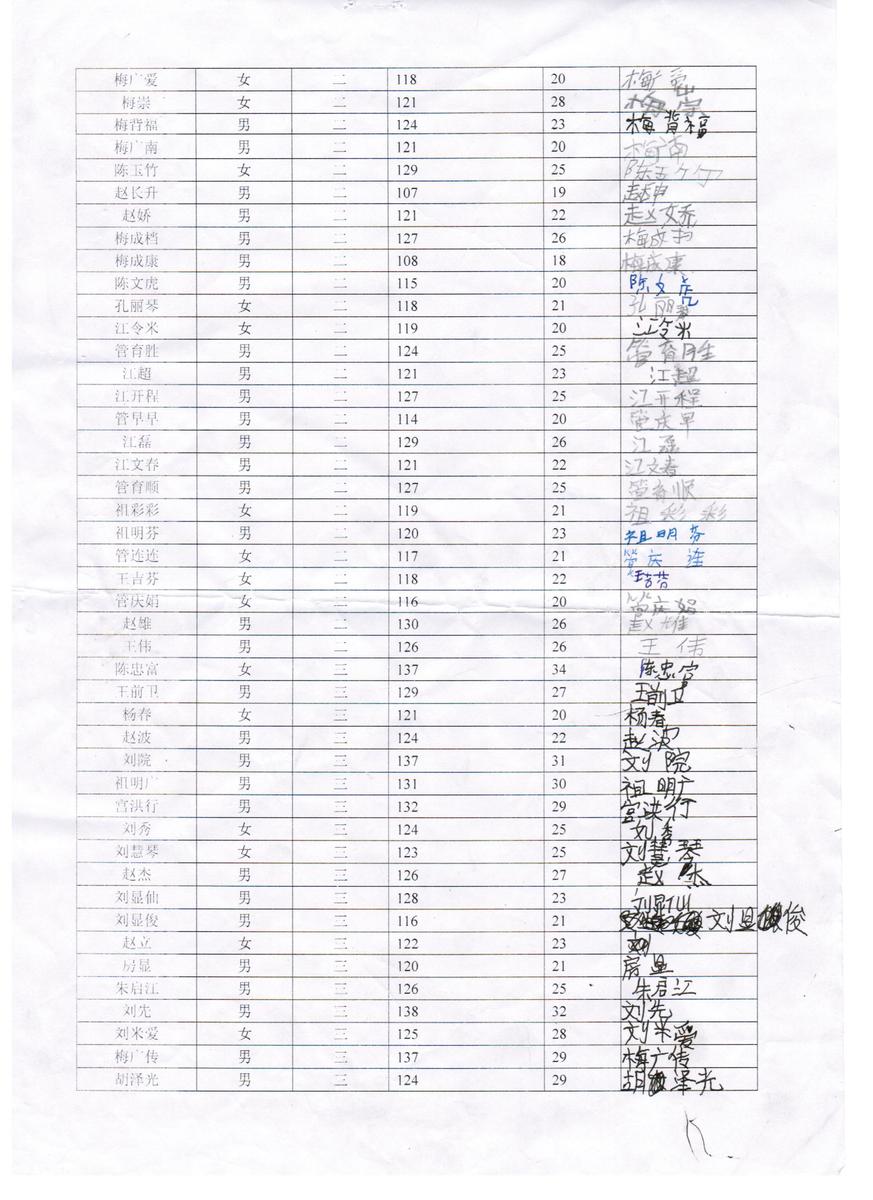 梅广爱 女 二 118 20 梅广爱
梅崇 女 二 121 28 梅崇
梅背福 男 二 124 23 梅背福
梅广南 男 二 121 20 梅南
陈玉竹 女 二 129 25 陈玉竹
赵长升 男 二 107 19
赵娇 男 二 121 22 赵娇
梅成档 男 二 127 26 梅成
梅成康 男 二 108 18 梅成康
陈文虎 男 二 115 20 陈文虎
孔丽琴 女 二 118 21 孔丽琴
江令米 女 二 119 20 江令米
管育胜 男 二 124 25 管育胜
江超 男 二 121 23 江超
江开程 男 二 127 25 江开程
管早早 男 二 114 20 管庆早
江磊 男 二 129 26 江磊
江文春 男 二 121 22 江文春
管育顺 男 二 127 25 管育顺
祖彩彩 女 二 119 21 祖彩彩
祖明芬 男 二 120 23 祖明芬
管连连 女 二 117 21 管庆连
王吉芬 女 二 118 22
管庆娟 女 二 116 20 管庆娟
赵雄 男 二 130 26 赵雄
王伟 男 二 126 26 王伟
陈忠富 女 三 137 34 陈忠富
王前卫 男 三 129 27 王前卫
杨春 女 三 121 20 杨春
赵波 男 三 124 22 赵波
刘院 男 三 137 31 刘院
祖明广 男 三 131 30 祖明广
宫洪行 男 三 132 29 宫洪行
刘秀 女 三 124 25 刘秀
刘慧琴 女 三 123 25 刘慧琴
赵杰 男 三 126 27 赵杰
刘显仙 男 三 128 23 刘显仙
刘显俊 男 三 116 21 刘显俊
赵立 女 三 122 23
房显 男 三 120 21 房显
朱启江 男 三 126 25 朱启江
刘先 男 三 138 32 刘先
刘米爱 女 三 125 28 刘米爱
梅广传 男 三 137 29 梅广传
胡泽光 男 三 124 29 胡泽光